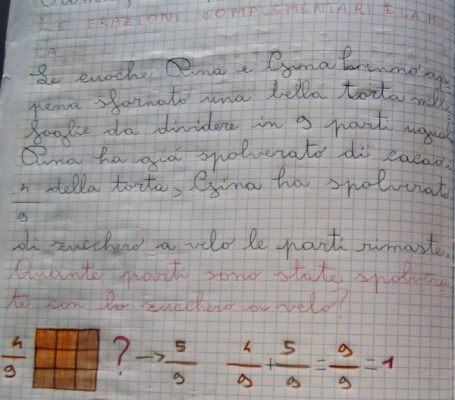 LE FRAZIONI COMPLEMENTARI E LA
CA
Le cuoche Pina e Gina hanno ap
pena sfornato una bella torta mille
foglie da dividere in 9 parti uguali
Pina ha già spolverato di cacao
4/9 della torta, Gina ha spolverato
di zucchero a velo le parti rimaste.
Quante parti sono state spolvera
te con lo zucchero a velo?
4/9 ? → 5/9 4/9 + 5/9 = 9/9 = 1